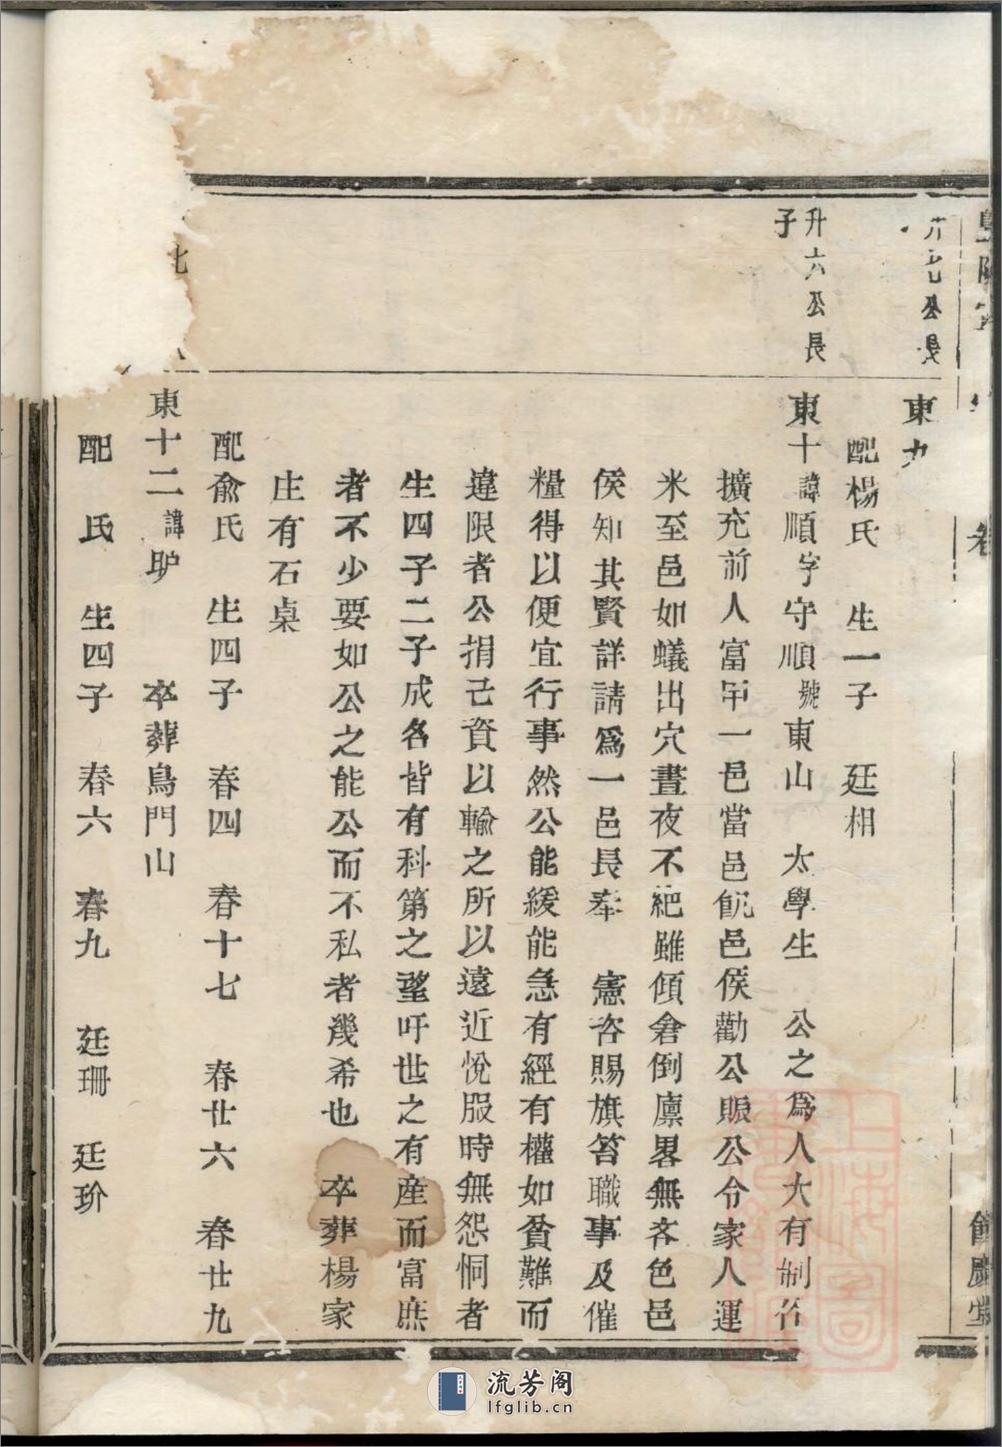 升 公長
東九
配楊氏 生一子 廷相
升六公長
子
東十諱順字守順號東山 太學生 公之爲人大有制
擴充前人富甲一邑當邑飢邑侯勸公賑公令家人運
米至邑如蟻出穴晝夜不絕雖傾倉倒廪畧無吝色邑
侯知其賢詳請爲一邑長奉 憲咨賜旗笞職事及催
糧得以便宜行事然公能緩能急有經有權如貧難而
違限者公捐己資以輸之所以遠近悅服時無怨恫者
生四子二子成名皆有科第之望吁世之有産而富庶
者不少要如公之能公而不私者幾希也 卒葬楊家
庄有石桌
配俞氏 生四子 春四 春十七 春廿六 春廿九
東十二諱馿 卒葬鳥門山
配 氏 生四子 春六 春九 廷珊 廷玠
流芳阁
lfglib.cn